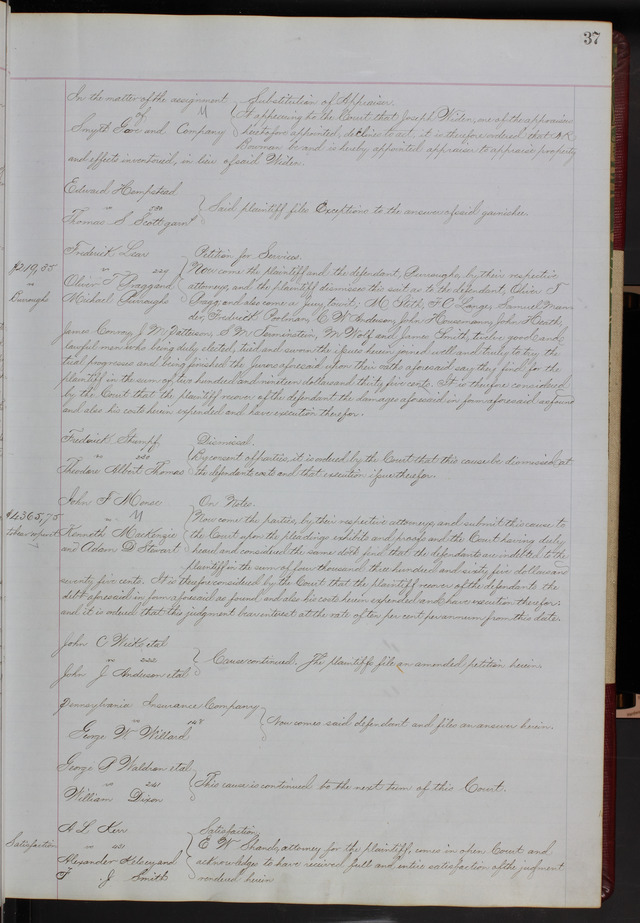 37
In the matter of the assignment } Substitution of Appraiser.
of M } It appearing to the Court that Joseph Weden, one of the appraisers
Smyth Gore and Company } heretofore appointed, declines to act, it is therefore ordered that
Bowman be and is hereby appointed appraiser to appraise property
and effects inventoried, in lieu of said Weden.
Edward Hempstead
vs 580 } Said plaintiff files Exceptions to the answer of said garnishee.
Thomas S Scott, garnt
Frederick Lear } Petition for Services.
$219,35 vs 224 } Now come the plaintiff and the defendant, Burroughs, by their respective
vs Oliver T Bragg and } attorneys, and the plaintiff dismisses this suit as to the defendant, Oliver T
Burroughs Michael Burroughs } Bragg; and also come a jury, towit; M Roth, F C Lange, Samuel
Frederick Poolman, C W Anderson, John Horssmann, John Heath,
James Conroy, J M Patterson, S M, M Wolf and James Smith, twelve good and
lawful men who being duly elected, tried and sworn the issues herein joined well and truly to try the
trial progresses and being finished the jurors aforesaid upon their oaths aforesaid say they find for the
plaintiff in the sum of two hundred and nineteen dollars and thirty five cents. It is therefore considered
by the Court that the plaintiff recover of the defendant the damages aforesaid in form aforesaid as found
and also his costs herein expended and have execution therefor.
Frederick Stumpf } Dismissal.
vs 240 } By consent of parties, it is ordered by the Court that this cause be dismissed at
Theodore Albert Thomas } the defendants costs and that execution issue therefor.
John F Morse } On Notes.
$4365,75 vs M } Now come the parties, by their respective attorneys, and submit this cause to
Kenneth MacKenzie } the Court upon the pleadings exhibits and proofs and the Court having duly
and Adam D Stewart } heard and considered the same doth find that the defendants are indebted to the
plaintiff in the sum of four thousand three hundred and sixty five dollars and
seventy five cents. It is therefore considered by the Court that the plaintiff recover of the defendants the
debt aforesaid in form aforesaid as found and also his costs herein expended and have execution therefor:
and it is ordered that this judgment bear interest at the rate of ten per cent per annum from this date.
John C Weik, etal
vs 222 } Cause continued. The plaintiffs file an amended petition herein.
John J Anderson etal
Pennsylvania Insurance Company
vs } Now comes said defendant and files an answer herein.
George W Willard
George P Waldran etal
vs 241 } This cause is continued to the next term of this Court.
William Dixon
A L Kerr } Satisfaction.
Satisfaction vs } E W Shands, attorney for the plaintiff, comes in open Court and
Alexander Kelsey and } acknowledges to have received full and entire satisfaction of the judgment
T J Smith } rendered herein